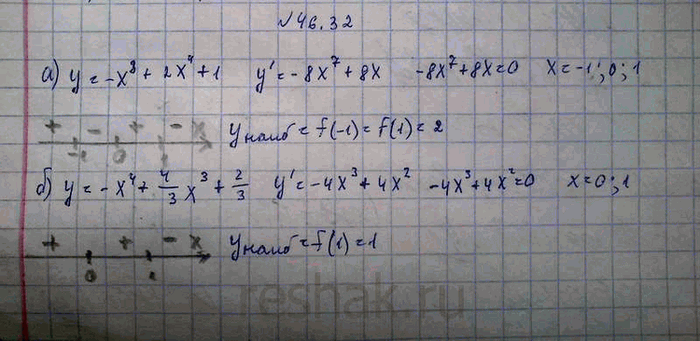 №46.32
а) y = -x⁸ + 2x⁴ + 1 y' = -8x⁷ + 8x -8x⁷+8x=0 x=-1; 0; 1
+ - + - x yнаиб = f(-1) = f(1) = 2
-1 0 1
б) y = -x⁴ + 4/3 x³ + 2/3 y' = -4x³ + 4x² -4x³+4x²=0 x=0; 1
+ + - x yнаиб = f(1) = 1
0 1
reshak.ru